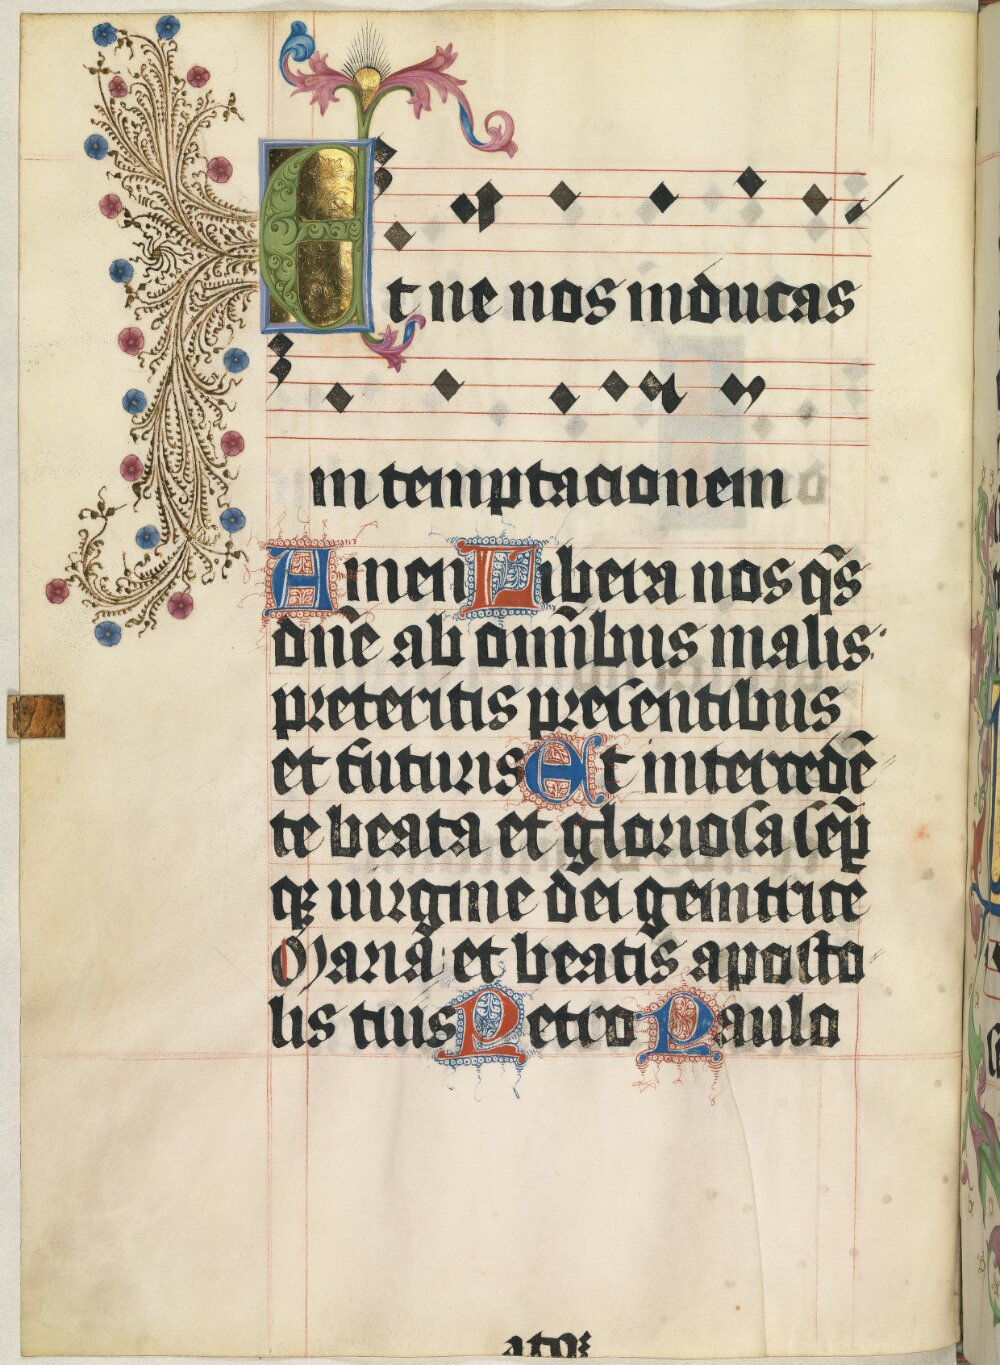 Et ne nos inducas
in temptacionem
Amen Libera nos q̄s
dn̄e ab om̄ibus malis
preteritis presentibus
et futuris Et intercedē
te beata et gloriosa semp̄
qꝫ uirgine dei genitrice
Maria et beatis aposto
lis tuis Petro Paulo